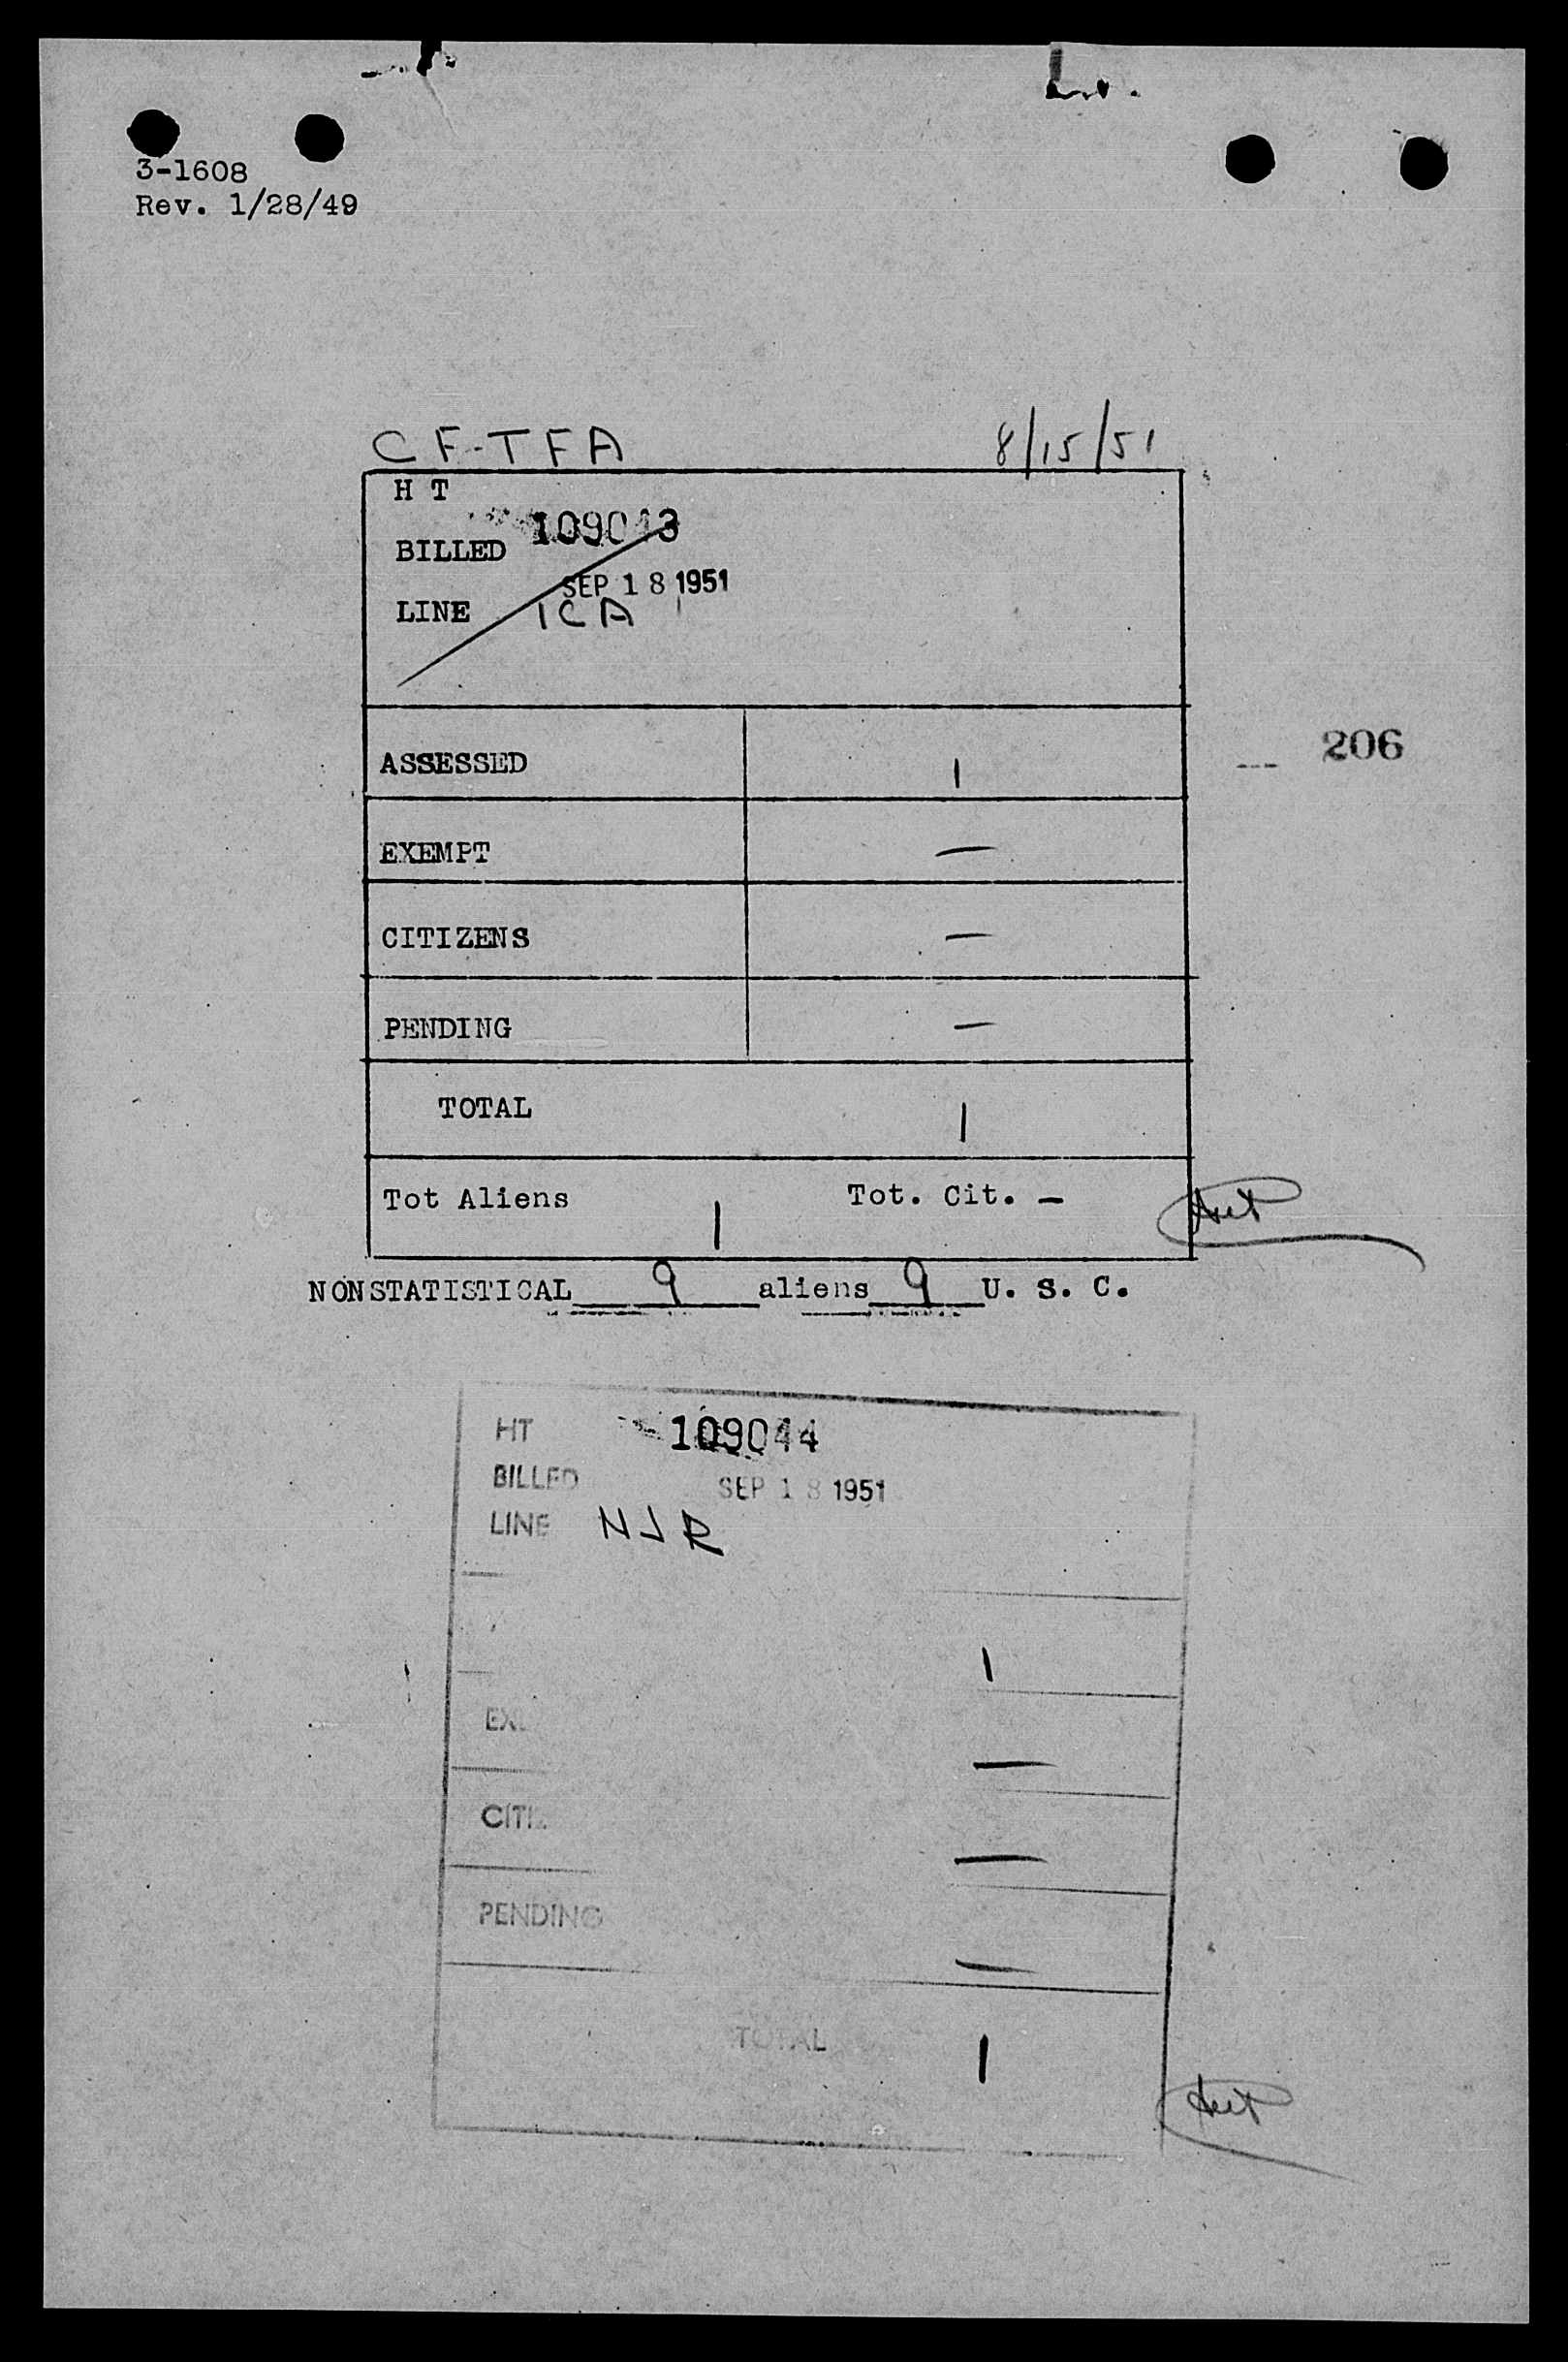 3-1608
Rev. 1/28/49
CF-TFA 8/15/51
H T
BILLED 109043
SEP 18 1951
LINE ICA
ASSESSED 1
206
EXEMPT —
CITIZENS —
PENDING —
TOTAL 1
Tot Aliens 1 Tot. Cit. —
NONSTATISTICAL 9 aliens 9 U. S. C.
HT 109044
BILLED SEP 18 1951
LINE NJR
1
—
—
PENDING —
TOTAL 1